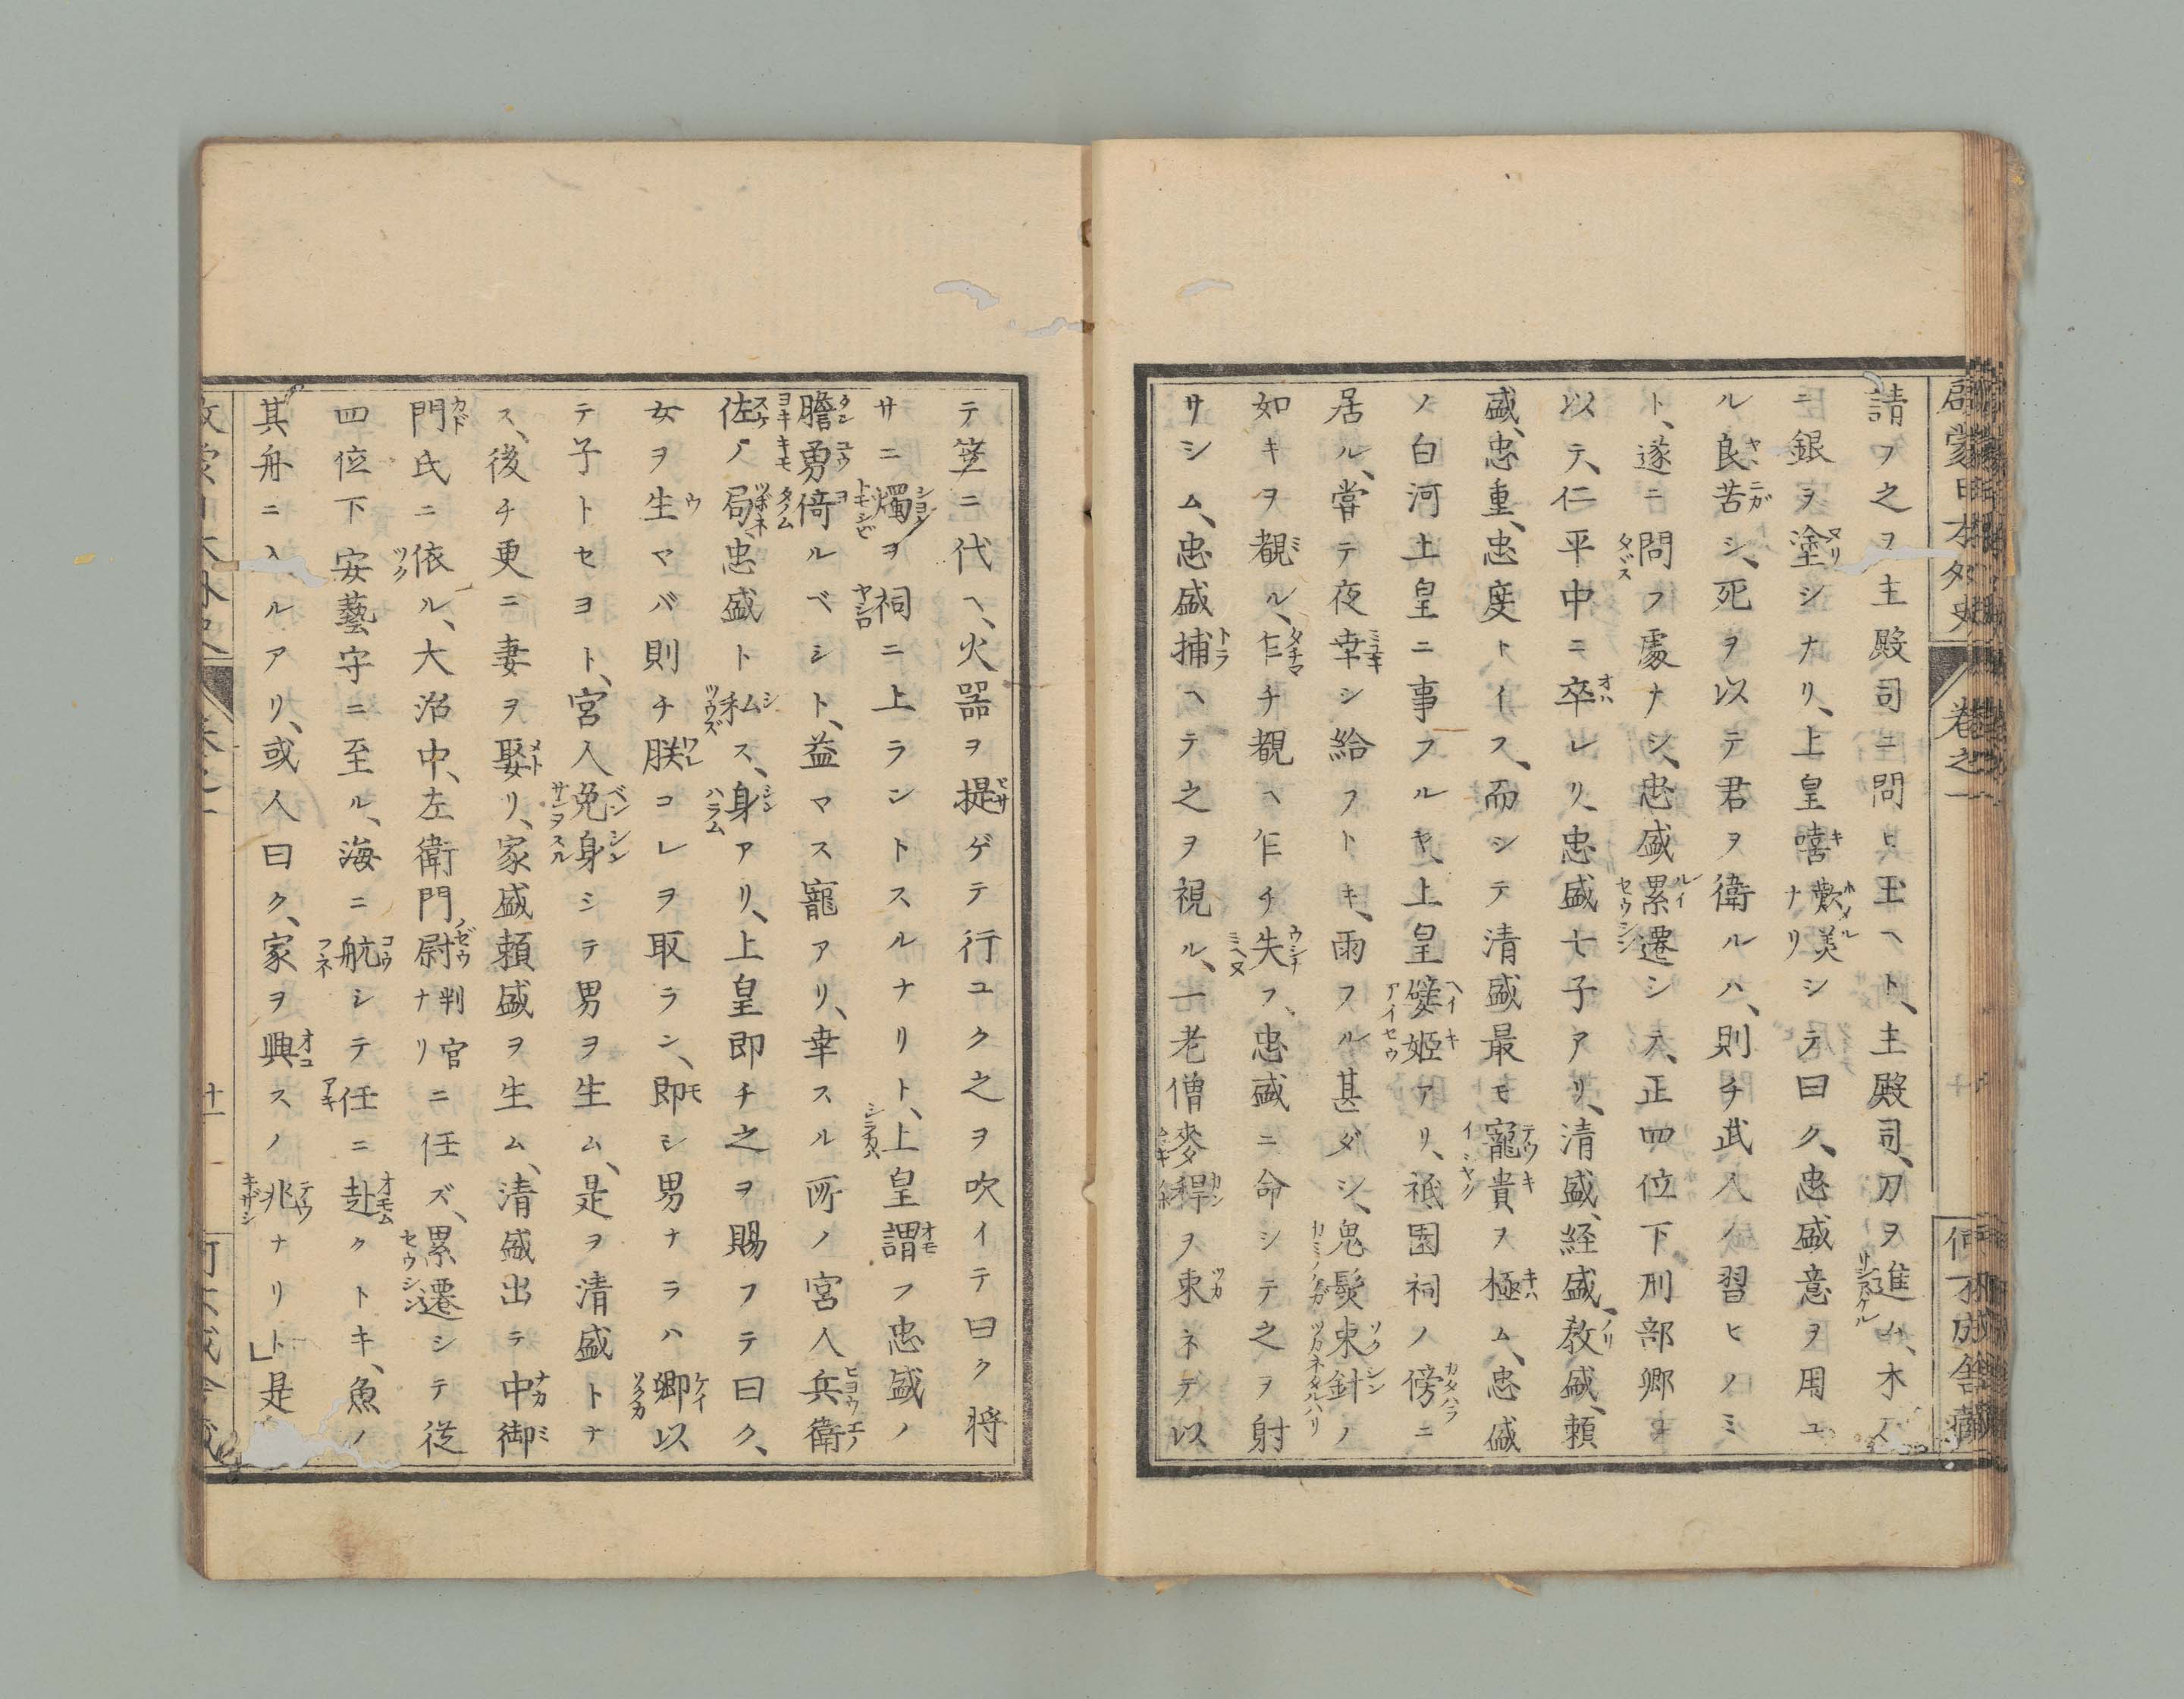 請フ之ヲ主殿司ニ問ヒ玉ヘト、主殿司、刀ヲ進ム、木
ニ銀ヲ塗シナリ、上皇嘻歎美シテ曰ク、忠盛意ヲ用ユ
ル良苦シ、死ヲ以テ君ヲ衛ルハ、則チ武人ノ習ヒノミ
ト、遂ニ問フ處ナシ、忠盛累遷シテ、正四位下刑部卿ヲ
以テ、仁平中ニ卒レリ、忠盛七子アリ、清盛、経盛、教盛、頼
盛、忠重、忠度トイス、而シテ清盛最モ寵貴ヲ極ム、忠盛
ノ白河上皇ニ事フルヤ、上皇嬖姫アリ、祇園祠ノ傍ニ
居ル、嘗テ夜幸シ給フトキ、雨フル甚ダシ、鬼髪束針ノ
如キヲ覩ル、乍チ覩ヘ乍チ失フ、忠盛ニ命シテ之ヲ射
サシム、忠盛捕ヘテ之ヲ視ル、一老僧麥稈ヲ束ネテ以
テ笠ニ代ヘ、火器ヲ提ゲテ行ユク之ヲ吹イテ曰ク将
サニ燭ヲ祠ニ上ラントスルナリト、上皇謂フ忠盛ノ
膽勇倚ルベシト、益マス寵アリ、幸スル所ノ宮人兵衛
佐ノ局、忠盛ト私ス、身アリ、上皇即チ之ヲ賜フテ曰ク、
女ヲ生マバ則チ朕コレヲ取ラン、即シ男ナラハ卿以
テ子トセヨト、宮人免身シテ男ヲ生ム、是ヲ清盛トナ
ス、後チ更ニ妻ヲ娶リ、家盛頼盛ヲ生ム、清盛出テ中御
門氏ニ依ル、大治中、左衛門尉判官ナリニ任ズ、累遷シテ従
四位下安藝守ニ至ル、海ニ航シテ任ニ赴クトキ、魚ノ
其舟ニ入ルアリ、或人曰ク、家ヲ興スノ兆ナリト」是
巻之一